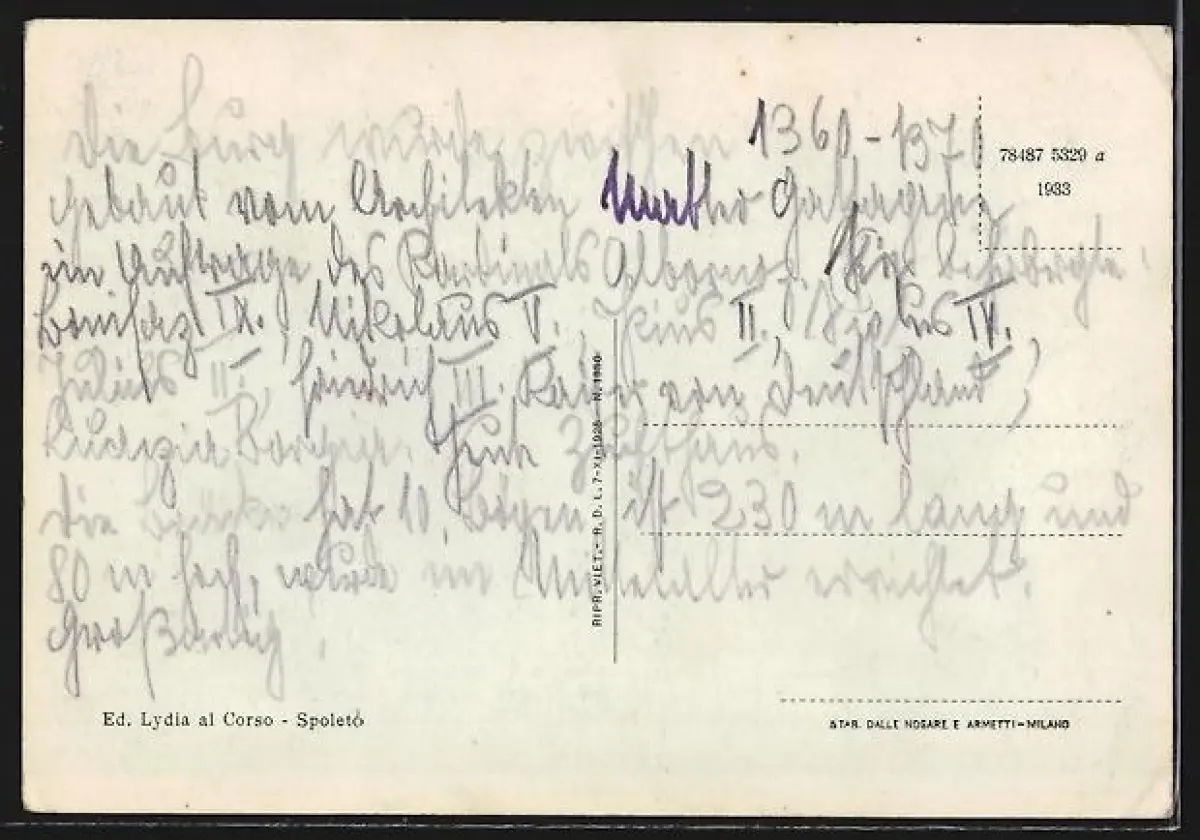 die Burg wurde zwischen 1360-137
gebaut vom Architekten
im Auftrage des Kardinals Albornoz. Hier beherbergte
Bonifaz IX., Nikolaus V., Pius II., Sixtus IV.,
Julius II., Friedrich III. Kaiser von Deutschland,
Lucrezia Borgia. Heute Zuchthaus.
die Brücke hat 10 Bögen, ist 230 m lang und
80 m hoch, wurde im Mittelalter errichtet.
Großartig.
78487 5329 a
1933
RIPR. VIET. - R. D. L. 7-XI-1925 - N. 1950
Ed. Lydia al Corso - Spoleto
STAB. DALLE NOGARE E ARMETTI - MILANO